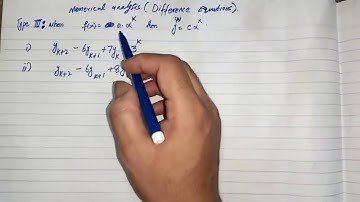 Numerical analysis ( Difference Equations).
Type IV: when f(x) = a. α^K then y^N = c α^K
i) y_{K+2} - 6y_{K+1} + 7y_K 3^K
ii) y_{K+2} - 6y_{K+1} + 8y